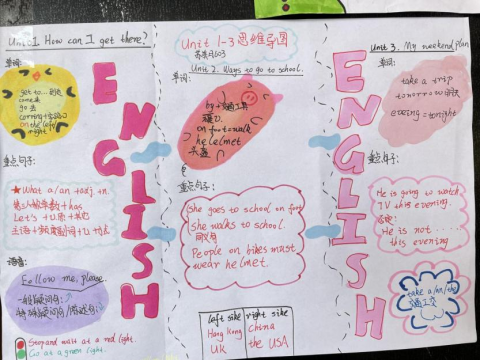 Unit 1 How can I get there?
单词:
get to... 到达
come 来
go 去
on the left/
right
重点句子:
★What a/an +adj. +n.
第三人称单数 + has
Let's + V原 + 其他
语音:
Follow me, please.
一般疑问句:
特殊疑问句/
Stop and wait at a red light.
Go at a green light.
ENGLISH
Unit 1-3 思维导图
Unit 2. Ways to go to school.
单词:
by + 交通工具
on foot = walk
helmet
头盔
重点句子:
She goes to school on foot
She walks to school.
同义句
People on bikes must
wear helmet.
left side right side
Hong Kong China
UK the USA
ENGLISH
Unit 3. My weekend plan
单词:
take a trip
tomorrow 明天
evening = tonight
重点句子:
He is going to watch
TV this evening.
He is not ......
this evening
take a/an/the